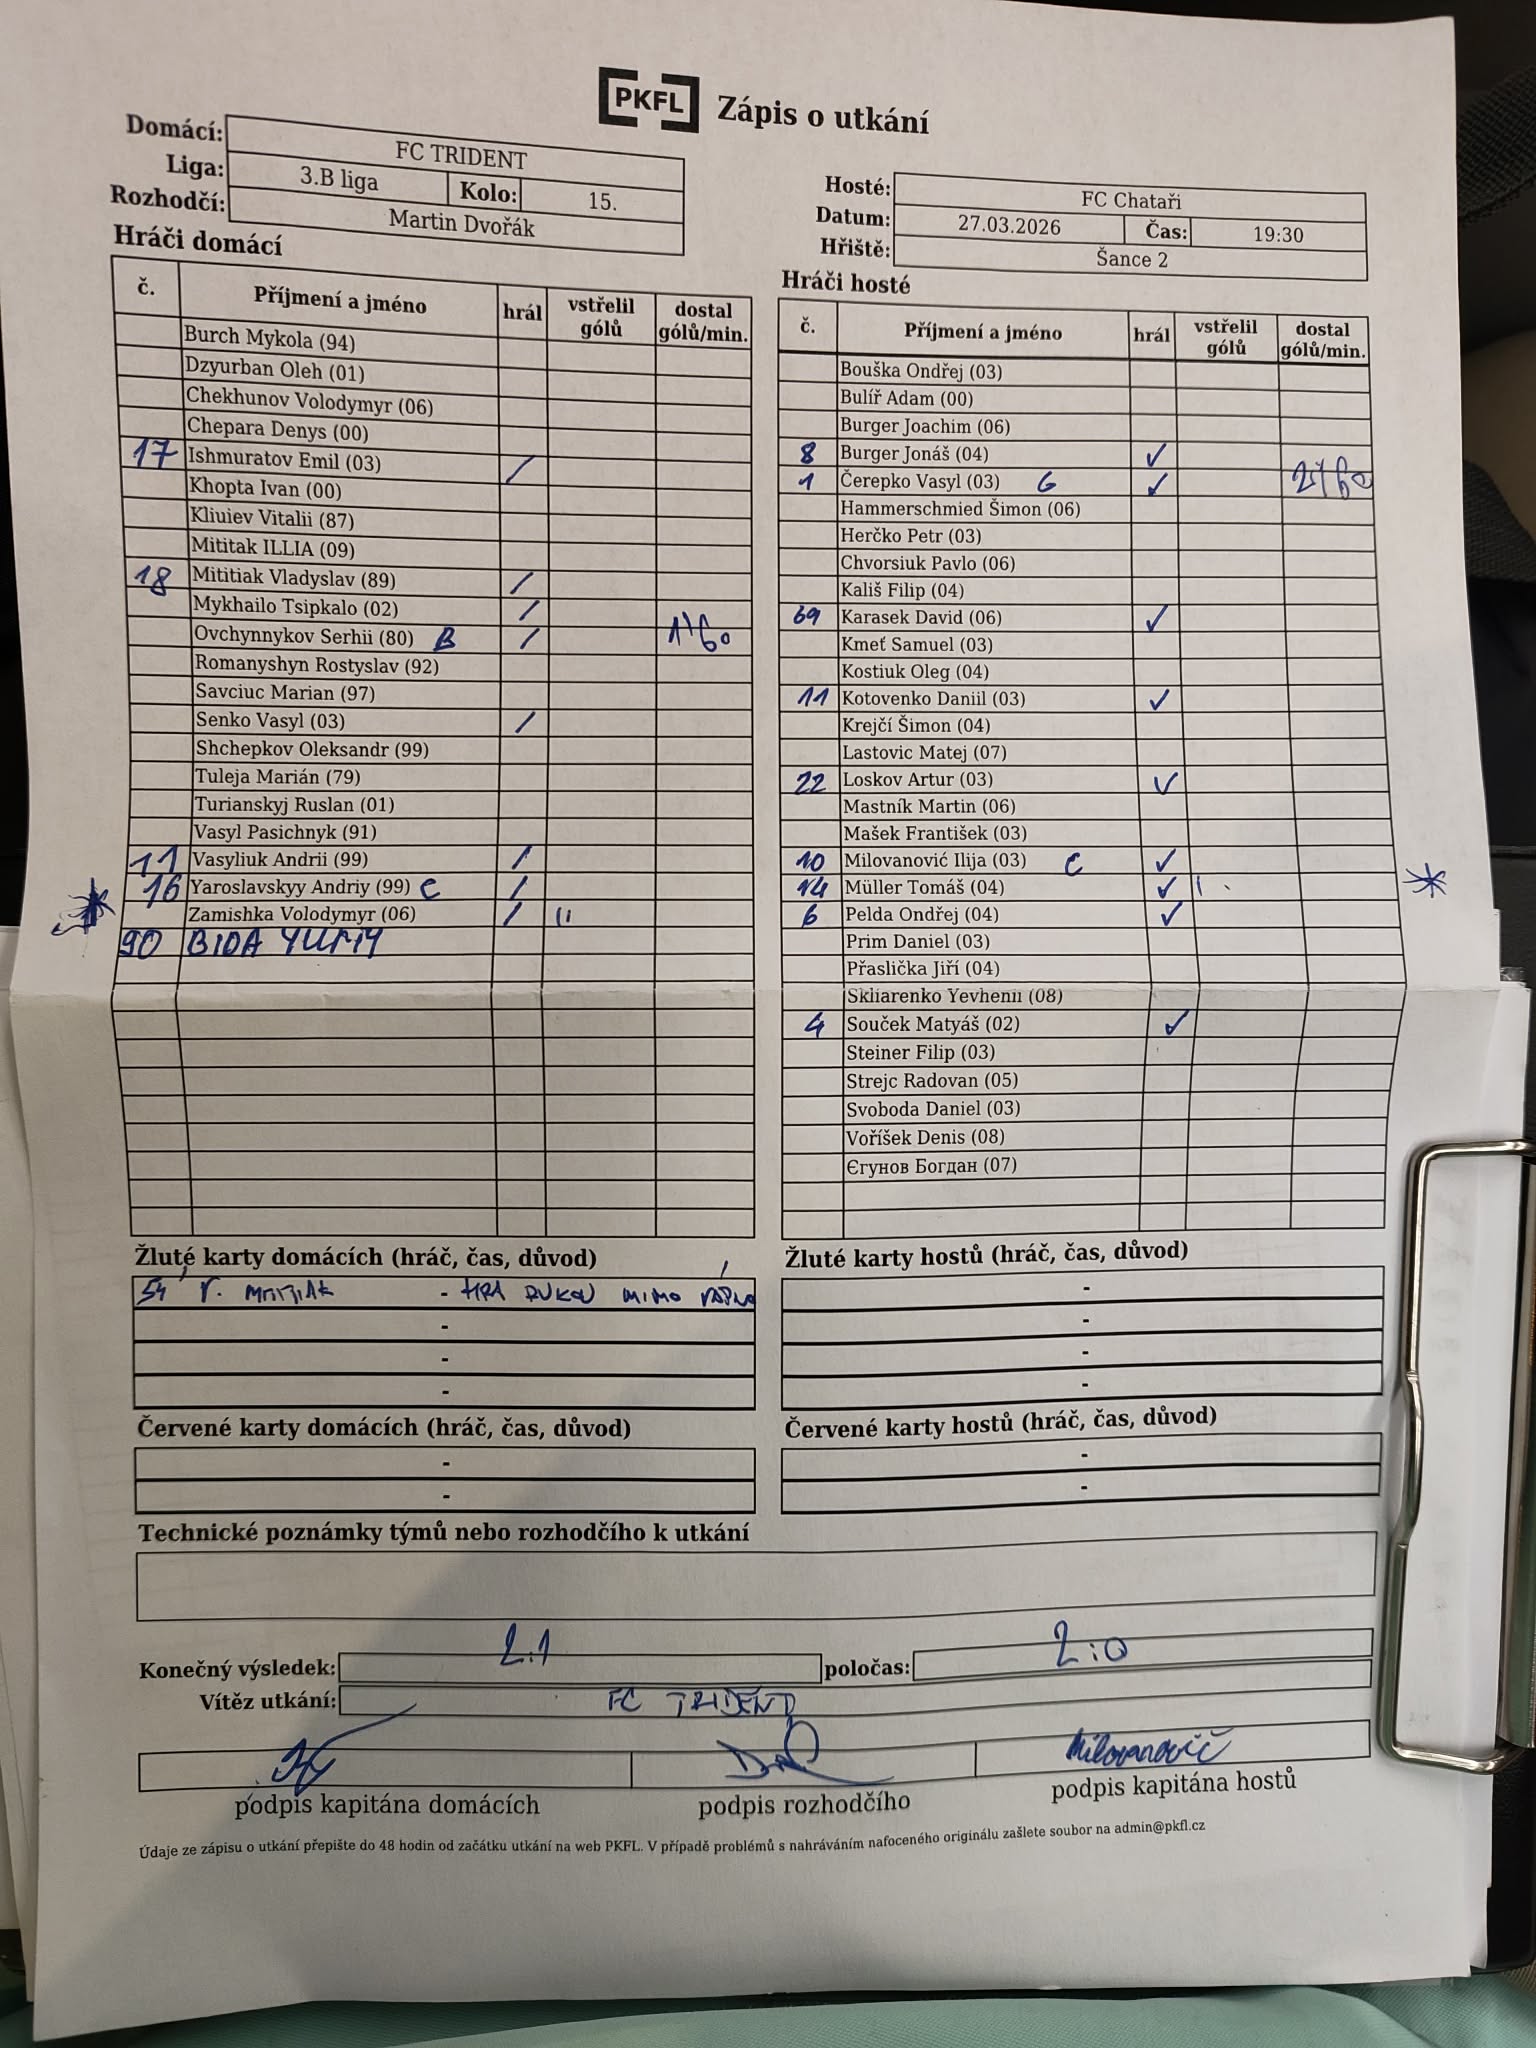 PKFL Zápis o utkání
Domácí: FC TRIDENT
Liga: 3.B liga Kolo: 15.
Rozhodčí: Martin Dvořák
Hosté: FC Chataři
Datum: 27.03.2026 Čas: 19:30
Hřiště: Šance 2
Hráči domácí
č. Příjmení a jméno hrál vstřelil gólů dostal gólů/min.
Burch Mykola (94)
Dzyurban Oleh (01)
Chekhunov Volodymyr (06)
Chepara Denys (00)
17 Ishmuratov Emil (03) /
Khopta Ivan (00)
Kliuiev Vitalii (87)
Mititak ILLIA (09)
18 Mititiak Vladyslav (89) /
Mykhailo Tsipkalo (02) /
Ovchynnykov Serhii (80) B / 1/60
Romanyshyn Rostyslav (92)
Savciuc Marian (97)
Senko Vasyl (03) /
Shchepkov Oleksandr (99)
Tuleja Marián (79)
Turianskyj Ruslan (01)
Vasyl Pasichnyk (91)
11 Vasyliuk Andrii (99) /
16 Yaroslavskyy Andriy (99) C /
Zamishka Volodymyr (06) / 11
90 BIDA YURIY
Hráči hosté
č. Příjmení a jméno hrál vstřelil gólů dostal gólů/min.
Bouška Ondřej (03)
Bulíř Adam (00)
Burger Joachim (06)
8 Burger Jonáš (04) ✓
1 Čerepko Vasyl (03) G ✓ 2/60
Hammerschmied Šimon (06)
Herčko Petr (03)
Chvorsiuk Pavlo (06)
Kališ Filip (04)
69 Karasek David (06) ✓
Kmeť Samuel (03)
Kostiuk Oleg (04)
11 Kotovenko Daniil (03) ✓
Krejčí Šimon (04)
Lastovic Matej (07)
22 Loskov Artur (03) ✓
Mastník Martin (06)
Mašek František (03)
10 Milovanović Ilija (03) C ✓
14 Müller Tomáš (04) ✓ 1
6 Pelda Ondřej (04) ✓
Prim Daniel (03)
Přaslička Jiří (04)
Skliarenko Yevhenii (08)
4 Souček Matyáš (02) ✓
Steiner Filip (03)
Strejc Radovan (05)
Svoboda Daniel (03)
Voříšek Denis (08)
Єгунов Богдан (07)
Žluté karty domácích (hráč, čas, důvod)
54' V. MITITIAK - HRA RUKOU MIMO
-
-
-
Žluté karty hostů (hráč, čas, důvod)
-
-
-
-
Červené karty domácích (hráč, čas, důvod)
-
-
Červené karty hostů (hráč, čas, důvod)
-
-
Technické poznámky týmů nebo rozhodčího k utkání
Konečný výsledek: 2:1 poločas: 2:0
Vítěz utkání: FC TRIDENT
Milovanovič
podpis kapitána domácích podpis rozhodčího podpis kapitána hostů
Údaje ze zápisu o utkání přepište do 48 hodin od začátku utkání na web PKFL. V případě problémů s nahráváním nafoceného originálu zašlete soubor na admin@pkfl.cz